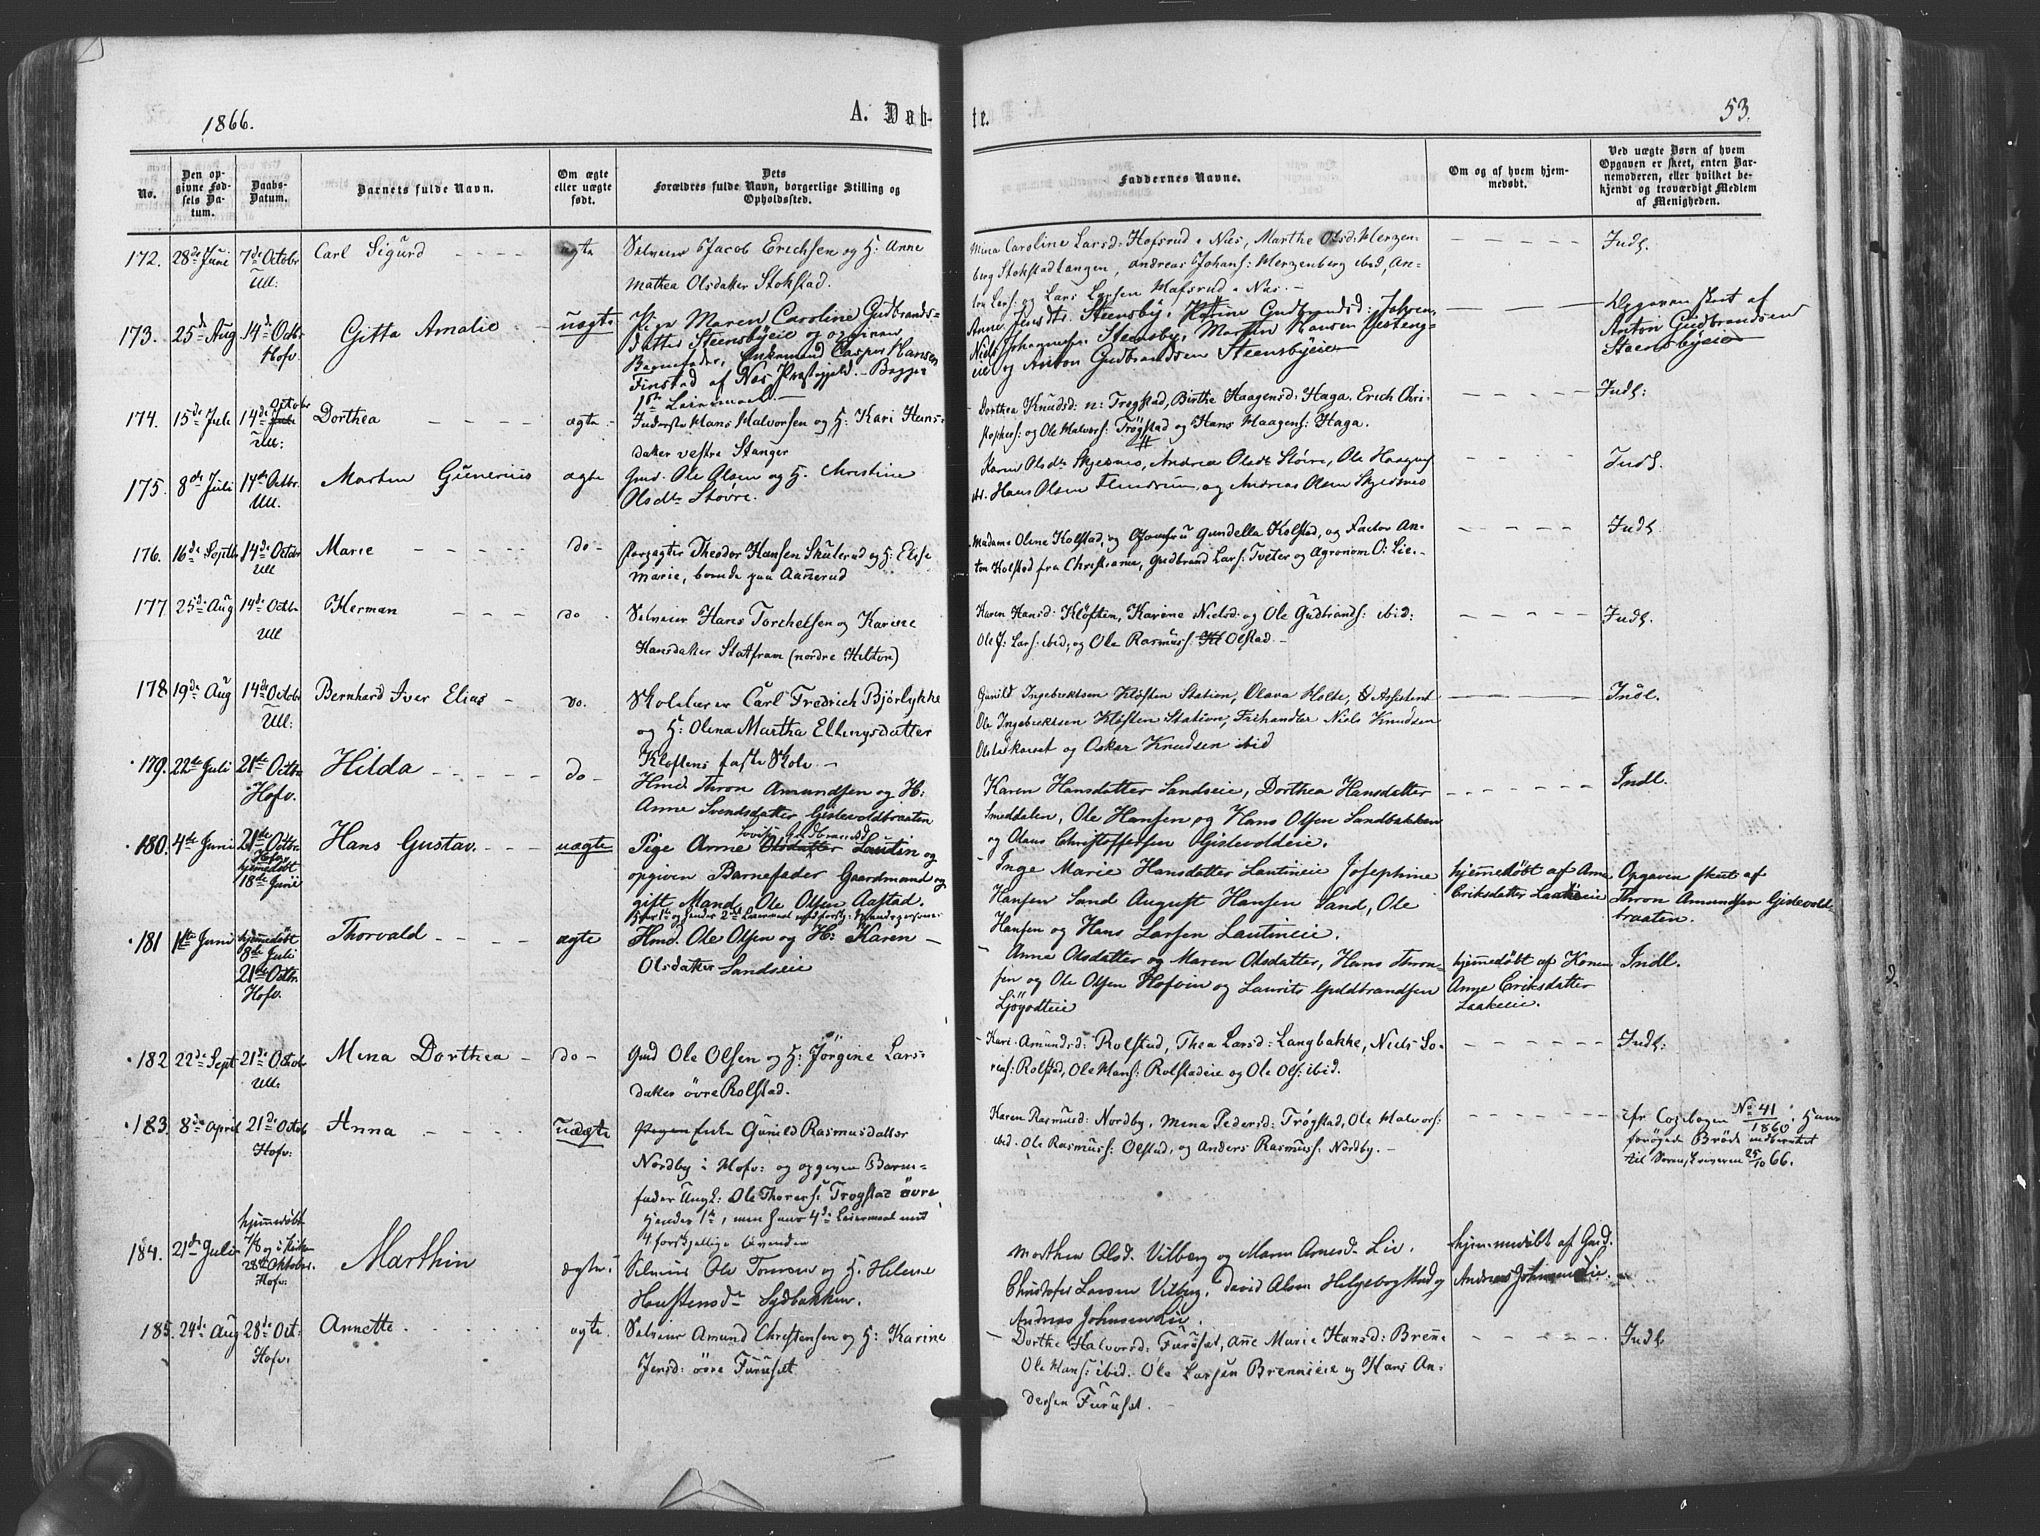 1866.
A. Døb-
te.
53.
No.
Den op-
givne Fød-
sels Da-
tum.
Daabs-
Datum.
Barnets fulde Navn.
Om ægte
eller uægte
født.
Dets
Forældres fulde Navn, borgerlige Stilling og
Opholdssted.
Faddernes Navne.
Om og af hvem hjem-
medøbt.
Ved uægte Børn af hvem
Opgaven er skeet, enten Bar-
nemoderen, eller hvilket be-
kjendt og troværdigt Medlem
af Menigheden.
172. 28de Juni 7de Octobr Ull: Carl Sigurd ægte
Selveier Jacob Erichsen og H: Anne
Mathea Olsdatter Stokstad.
Mina Caroline Larsd: Hofsrud i Næs, Marthe Olsd: Herzen-
berg Stokstadtangen, Andreas Johans: Herzenberg ibid, An-
ton Lars: og Lars Larsen Hafsrud i Næs. -
Indl.
173. 25de Aug 14de Octbr Hofv. Gitta Amalie uægte
Pige Maren Caroline Gudbrands-
datter Steensbyeie og opgiven
Barnefader, Enkemand Casper Hansen
Finstad af Næs Præstegjeld. - Begges
1ste Leiermaal. -
Anne Jensdtr. Steensby, Karine Gudbrandsd:
Niels Johannes: Steensby, Morten Hansen Gisteng-
eie og Anton Gudbrandsen Steensbyeie
Opgaven skeet af
Anton Gudbrandsen
Steensbyeie
174. 15de Juli 14de Octobr Ull: Dorthea ægte
Inderste Hans Halvorsen og H: Kari Hans-
datter vestre Stanger
Dorthea Knudsd: n: Trøgstad, Birthe Haagensd: Haga. Erich Chri-
stophers: og Ole Halvors: Trøgstad og Hans Haagens: Haga.
Indl:
175. 8de Juli 14de Octbr. Ull. Morten Gunerius ægte
Gmd. Ole Olsen og H. Christine
Olsdtr Støvre.
Karen Olsdtr Skjesnes, Andrea Olsdtr Støvre, Ole Haagens:
ibd. Hans Olsen Flendrum, og Andreas Olsen Skjesnes
Indl.
176. 16de Septbr 14de Octobr Ull Marie do -
Forpagter Theodor Hansen Skulerud og H: Elise
Marie, boende paa Aanerud
Madame Oline Kolstad, og Jomfru Gundella Kolstad, og Factor An-
ton Kolstad fra Christiania, Gudbrand Lars: Tveter og Agronom O: Lie.
Indl
177. 25de Aug 14de Octbr Ull Herman do -
Selveier Hans Torchelsen og Karine
Hansdatter Statfram (nordre Hilton)
Karen Hansd: Kløften, Karine Nielsd: og Ole Gudbrands: ibid:
Ole J: Lars: ibid, og Ole Rasmuss: Olstad. -
Indl.
178. 19de Aug 14de Octobr Ull: Bernhard Iver Elias - do.
Skolelærer Carl Fredrich Bjørlykke
og H: Olena Martha Ellingsdatter
Kløftens faste Skole -
Gunild Ingebrektsen Kløften Station, Olava Holte, Assistent
Ole Ingebrektsen Kløften Station, Frihandler Niels Knudsen
Olstadkorset og Oskar Knudsen ibid
Indl.
179. 22de Juli 21de Octbr Hofv. Hilda do -
Hmd Thron Amundsen og H:
Anne Svendsdatter Gistevoldbraaten
Karen Hansdatter Sandseie, Dorthea Hansdatter
Smeddalen, Ole Hansen og Hans Olsen Sandbakken
og Olaus Christoffersen Gistevoldeie.
Indl.
180. 4de Juni 21de Octbr Hofv. hjemmedøbt 18de Juni Hans Gustav. uægte
Lovise Gudbrandsd
Pige Anne Olsdatter Lautin og
opgiven Barnefader Gaardmand og
gift Mand, Ole Olsen Aastad.
- Inge Marie Hansdatter Lautineie Josephine
Hansen Sand, August Hansen Sand, Ole
Hansen og Hans Larsen Lautineie.
hjemmedøbt af Anne
Eriksdatter Laakeie
Opgaven skeet af
Thron Amundsen Gistevold-
braaten.
181 1ste Juni hjemmedøbt 8de Juli 21de Octbr. Hofv. Thorvald ægte
Hmd. Ole Olsen og H: Karen -
Olsdatter Sandseie
- Anne Olsdatter og Maren Olsdatter, Hans Thron-
sen og Ole Olsen Hofvin og Laurits Guldbrandsen
Ljøgodteie
hjemmedøbt af Konen
Anne Eriksdatter
Laakeie.
Indl.
182 22de Sept 21de Octob Ull. Mina Dorthea - do -
Gmd Ole Olsen og H: Jørgine Lars-
datter øvre Rolstad.
- Kari Amundsd: Rolstad, Thea Larsd: Langbakke, Niels So-
rens: Rolstad, Ole Hans: Rolstadeie og Ole Ols: ibid.
Indl:
183. 8de April 21de Octob Hofv: Anna uægte
Enke Gunild Rasmusdatter
Nordby i Hofv: og opgiven Barne-
fader Ungk: Ole Thores: Trøgstad øvre
Hendes 1ste, men hans 4de Leiermaal med
4 forskjellige Qvinder
Karen Rasmusd: Nordby, Mina Pedersd: Trøgstad, Ole Halvors:
ibid. Ole Rasmuss: Olstad, og Anders Rasmuss: Nordby. -
cfr Copibogen No 41/1860
til Sorenskriveren 25/10 66.
184. 21de Juli hjemmedøbt 7/8 og i Kirken 28de Oktober. Hofv: Marthin ægte
Selveier Ole Tomsen og H. Helene
Houstensdr Sydbakken.
Marthea Olsd. Vilberg og Maren Arnesd. Lie.
Christofer Larsen Vilberg. David Olsen Helgebogstad og
Andreas Johnsen Lie.
hjemmedøbt af Gmd.
Andreas Johnsen Lie.
185. 24de Aug 28de Oct: Hofv: Annette. ægte.
Selveier Amund Christensen og H: Karine
Jensd: øvre Furuset
- Dorthe Halvorsd: Furuset, Anne Marie Hansd: Brenne
Ole Hans: ibid. Ole Larsen Brennieie og Hans An-
dersen Furuset. -
Indl